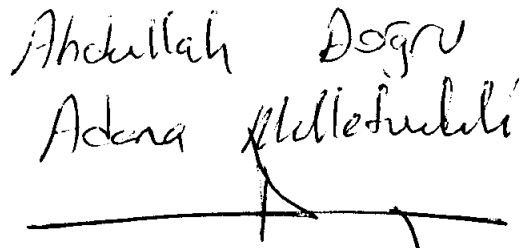 Abdullah Doğru
Adana Milletvekili